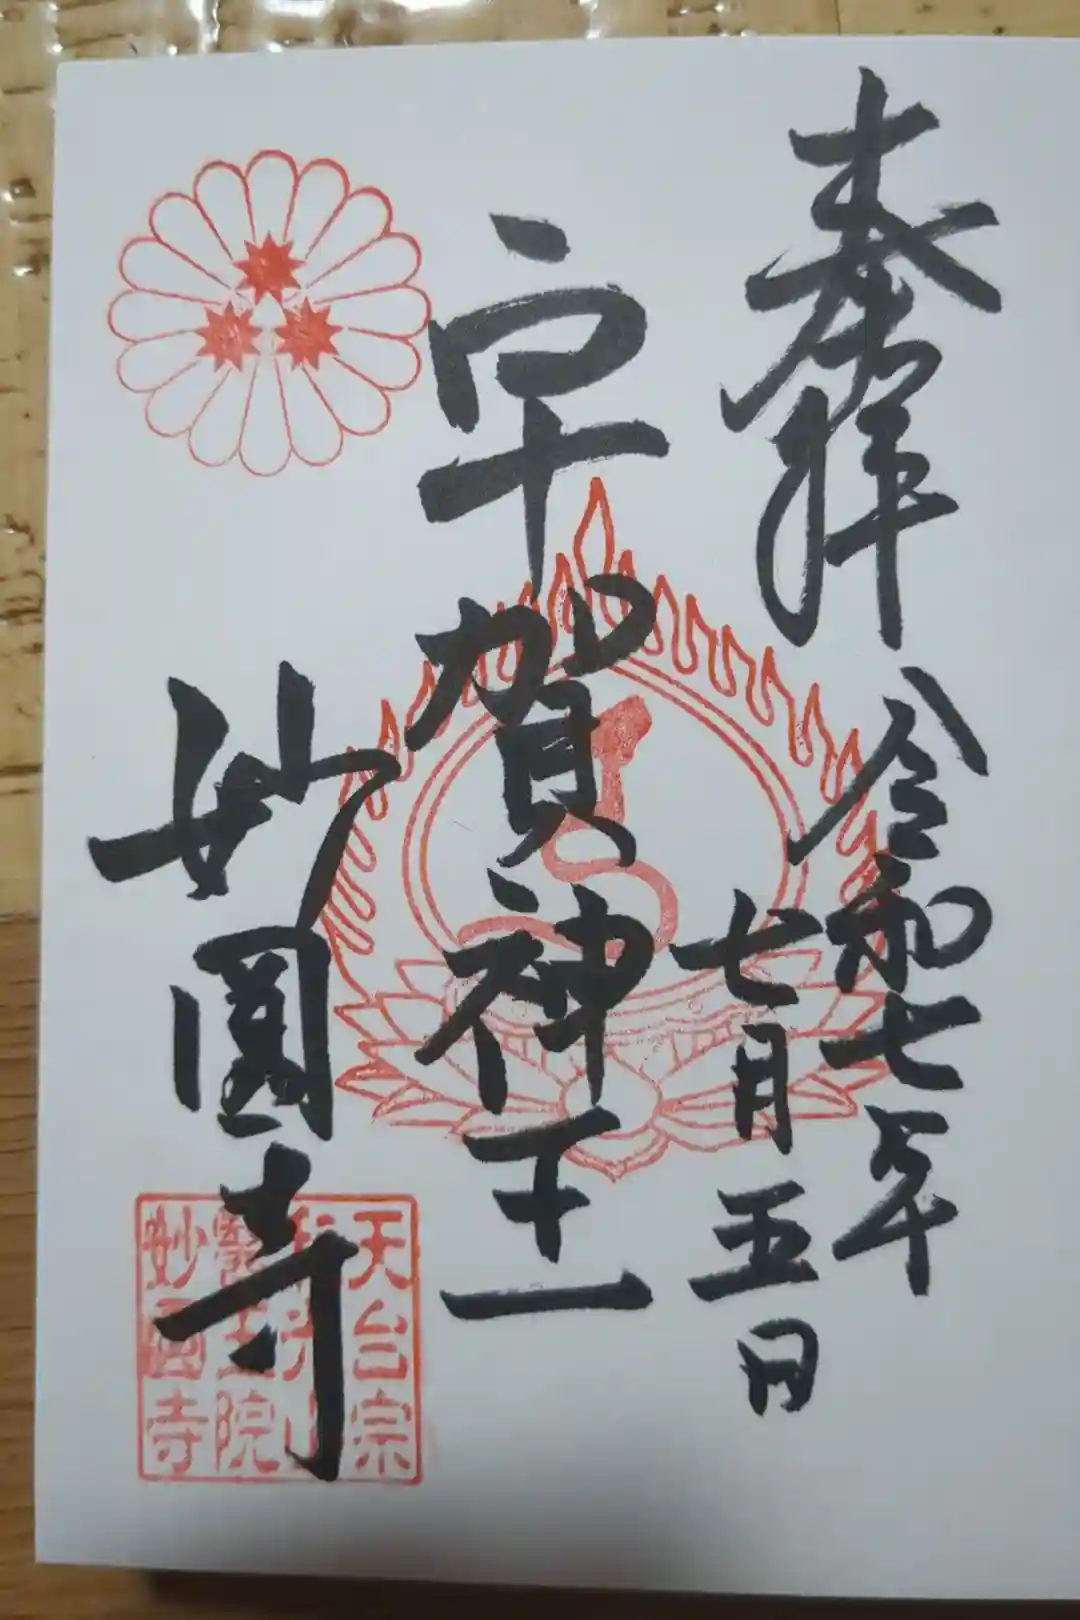 奉拝
令和七年
七月五日
宇賀神王
妙圓寺
天台宗
院
妙圓寺